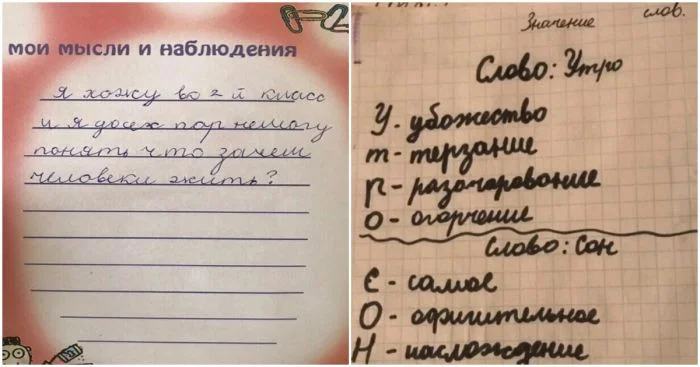 мои мысли и наблюдения
я хожу во 2 й класс
и я досех пор немогу
понять что зачем
человеки жить?
Значение слов.
Слово: Утро
У - убожество
т - терзание
р - разочарование
о - огорчение
Слово: Сон
С - самое
О - офигительное
Н - наслождение